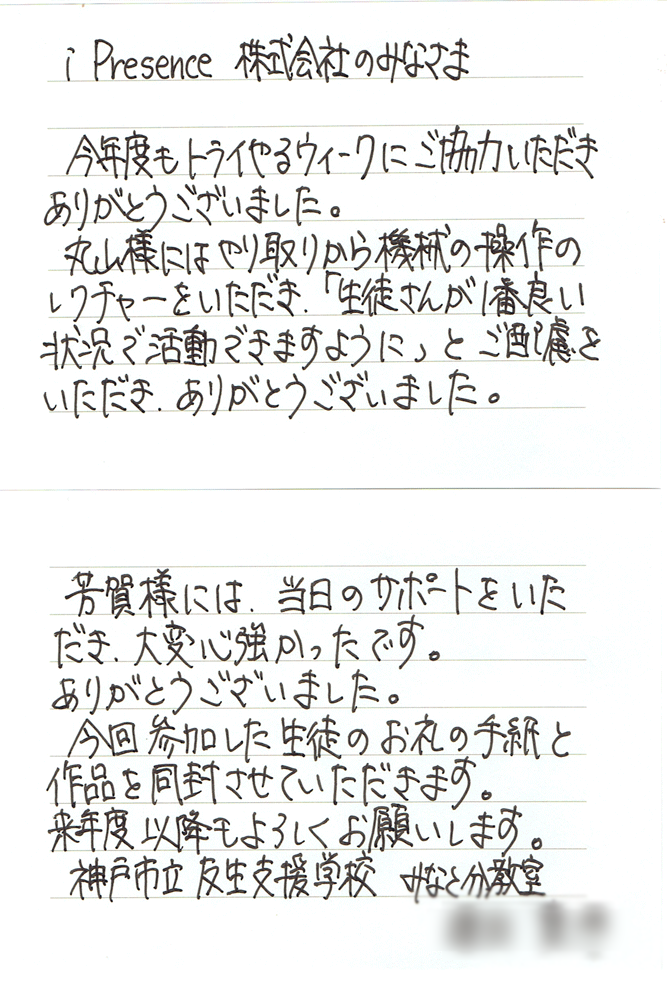 i Presence 株式会社のみなさま
今年度もトライやるウィークにご協力いただき
ありがとうございました。
丸山様にはやり取りから機械の操作の
レクチャーをいただき、「生徒さんが1番良い
状況で活動できますように」とご配慮を
いただき、ありがとうございました。
芳賀様には、当日のサポートをいた
だき、大変心強かったです。
ありがとうございました。
今回参加した生徒のお礼の手紙と
作品を同封させていただきます。
来年度以降もよろしくお願いします。
神戸市立友生支援学校 みなと分教室